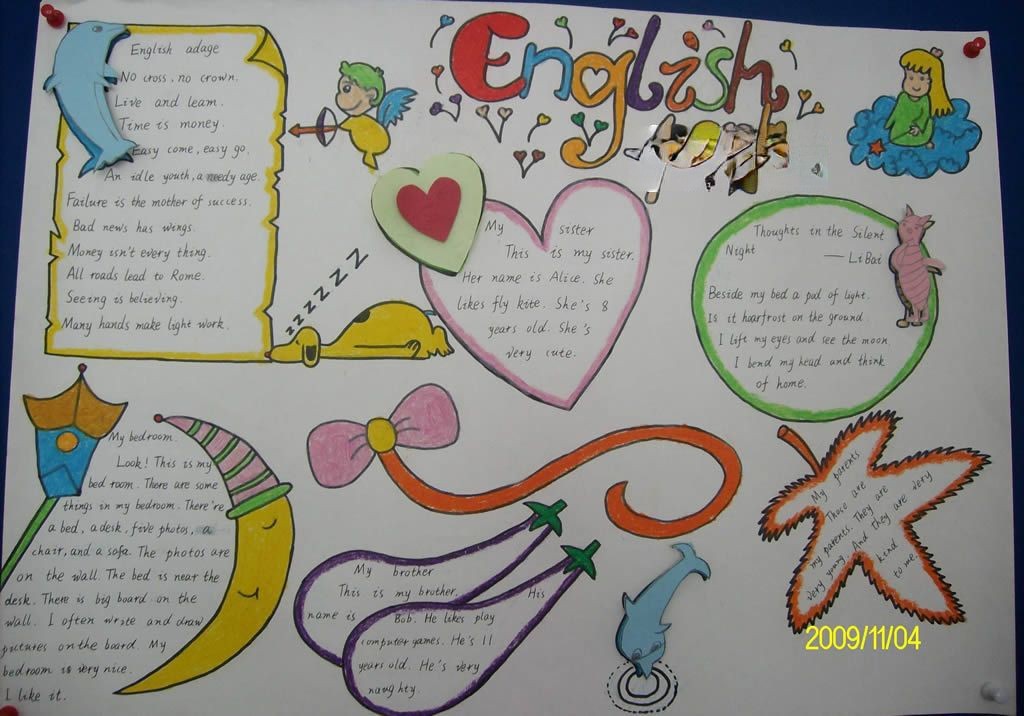 English
English adage
No cross, no crown.
Live and learn.
Time is money.
Easy come, easy go.
An idle youth, a needy age.
Failure is the mother of success.
Bad news has wings.
Money isn't every thing.
All roads lead to Rome.
Seeing is believing.
Many hands make light work.
zzzzzZZ
My sister
This is my sister.
Her name is Alice. She
likes fly kite. She's 8
years old. She's
very cute.
Thoughts in the Silent
Night
— LiBai
Beside my bed a pool of light.
Is it hoarfrost on the ground.
I lift my eyes and see the moon.
I bend my head and think
of home.
My bedroom.
Look! This is my
bed room. There are some
things in my bedroom. There're
a bed, a desk, five photos, a
chair, and a sofa. The photos are
on the wall. The bed is near the
desk. There is big board on the
wall. I often write and draw
pictures on the board. My
bedroom is very nice.
I like it.
My brother
This is my brother. His
name is Bob. He likes play
computer games. He's 11
years old. He's very
naughty.
My parents
Those are
my parents. They are
very young. And they are very
kind
to me.
2009/11/04